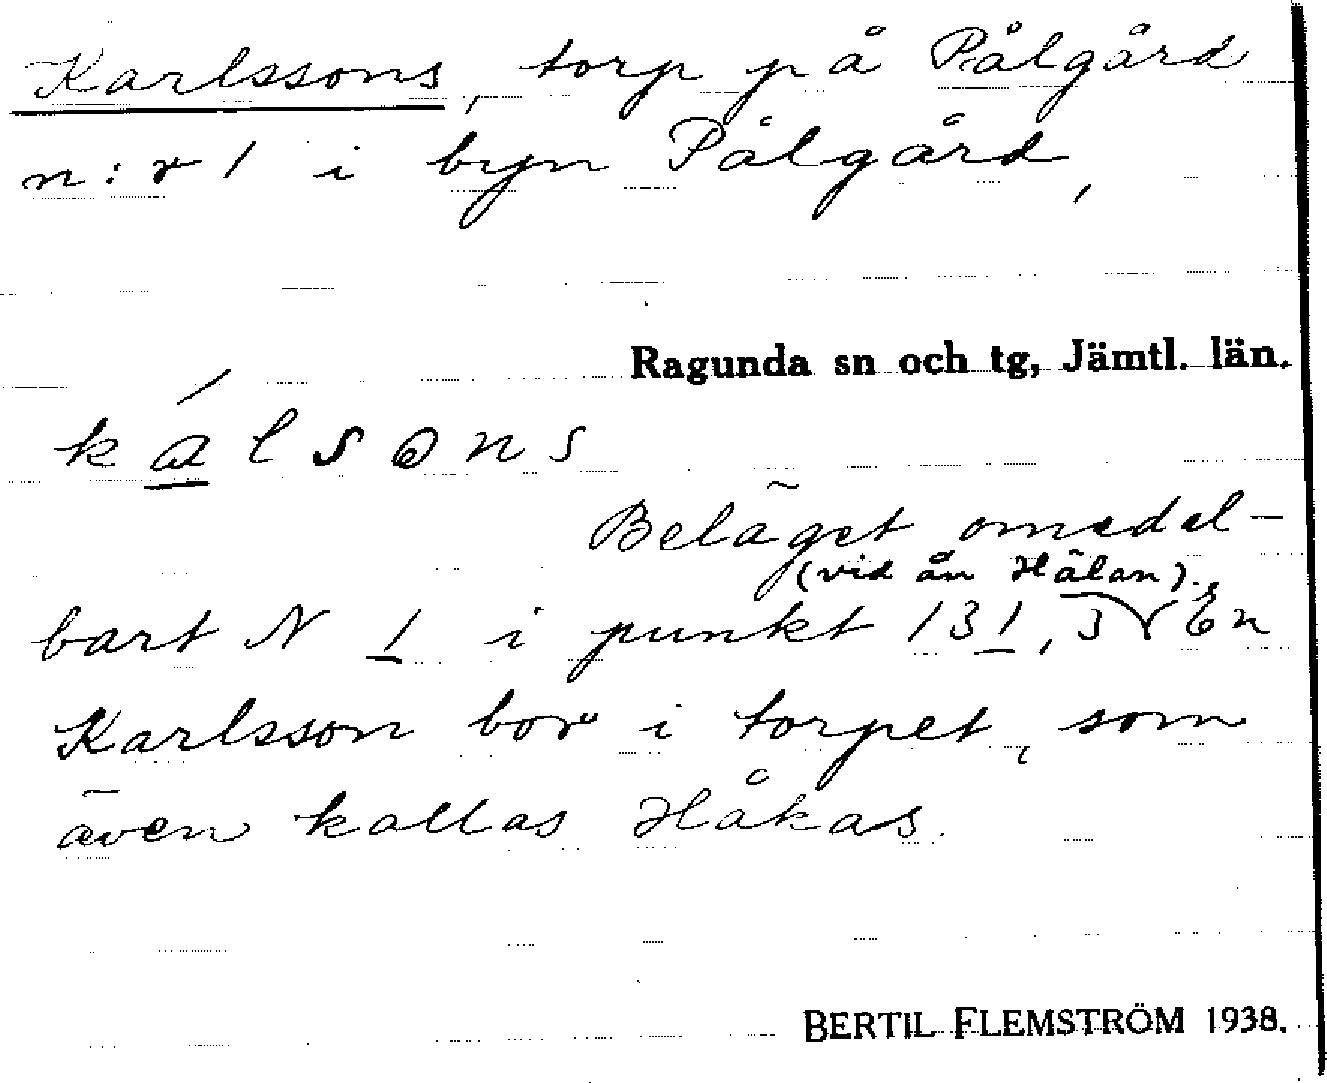 Karlssons, torp på Pålgård
n:r 1 i byn Pålgård,
Ragunda sn och tg, Jämtl. län.
kálsɷns
Beläget omedel-
(vid ån Hålan).
bart N 1 i punkt 131,3 En
Karlsson bor i torpet, som
även kallas Håkas.
BERTIL FLEMSTRÖM 1938.